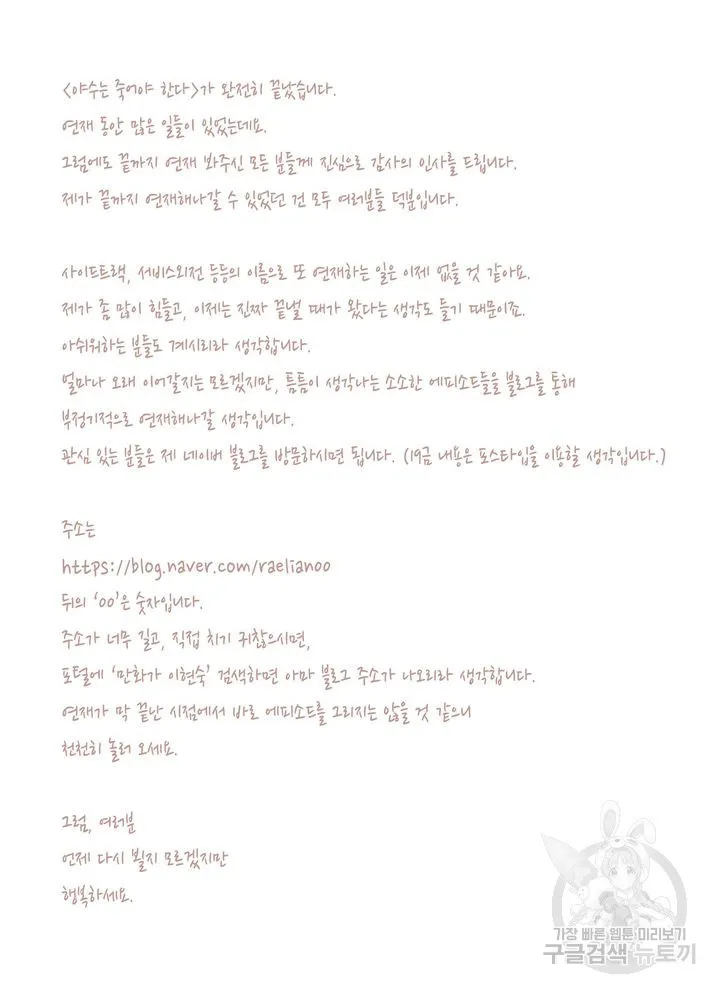 <야수는 죽어야 한다>가 완전히 끝났습니다.
연재 동안 많은 일들이 있었는데요.
그럼에도 끝까지 연재 봐주신 모든 분들께 진심으로 감사의 인사를 드립니다.
제가 끝까지 연재해나갈 수 있었던 건 모두 여러분들 덕분입니다.
사이드트랙, 서비스외전 등등의 이름으로 또 연재하는 일은 이제 없을 것 같아요.
제가 좀 많이 힘들고, 이제는 진짜 끝낼 때가 왔다는 생각도 들기 때문이죠.
아쉬워하는 분들도 계시리라 생각합니다.
얼마나 오래 이어갈지는 모르겠지만, 틈틈이 생각나는 소소한 에피소드들을 블로그를 통해
부정기적으로 연재해나갈 생각입니다.
관심 있는 분들은 제 네이버 블로그를 방문하시면 됩니다. (19금 내용은 포스타입을 이용할 생각입니다.)
주소는
https://blog.naver.com/raelian00
뒤의 '00'은 숫자입니다.
주소가 너무 길고, 직접 치기 귀찮으시면,
포털에 '만화가 이현숙' 검색하면 아마 블로그 주소가 나오리라 생각합니다.
연재가 막 끝난 시점에서 바로 에피소드를 그리지는 않을 것 같으니
천천히 놀러 오세요.
그럼, 여러분
언제 다시 뵐지 모르겠지만
행복하세요.
가장 빠른 웹툰 미리보기
구글검색 뉴토끼